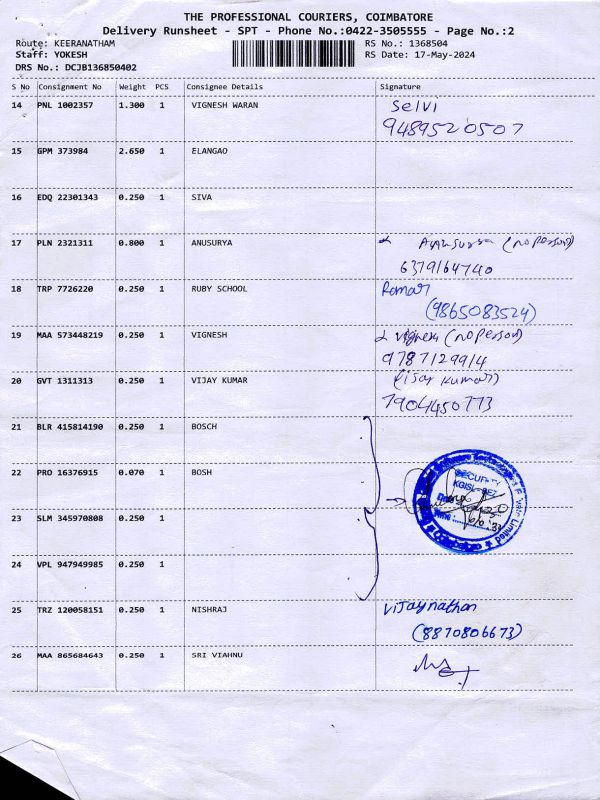 THE PROFESSIONAL COURIERS, COIMBATORE
Delivery Runsheet - SPT - Phone No.:0422-3505555 - Page No.:2
Route: KEERANATHAM RS No.: 1368504
Staff: YOKESH RS Date: 17-May-2024
DRS No.: DCJB136850402
S No Consignment No Weight PCS Consignee Details Signature
14 PNL 1002357 1.300 1 VIGNESH WARAN Selvi
9489520507
15 GPM 373984 2.650 1 ELANGAO
16 EDQ 22301343 0.250 1 SIVA
17 PLN 2321311 0.800 1 ANUSURYA (no person)
6379164740
18 TRP 7726220 0.250 1 RUBY SCHOOL
(9865083524)
19 MAA 573448219 0.250 1 VIGNESH Vignesh (no person)
9787129914
20 GVT 1311313 0.250 1 VIJAY KUMAR (Vijay Kumar)
7904450773
21 BLR 415814190 0.250 1 BOSCH
22 PRO 16376915 0.070 1 BOSH
SECURITY
KGISL-SEZ
23 SLM 345970808 0.250 1
24 VPL 947949985 0.250 1
25 TRZ 120058151 0.250 1 NISHRAJ Vijaynathan
(8870806673)
26 MAA 865684643 0.250 1 SRI VIAHNU